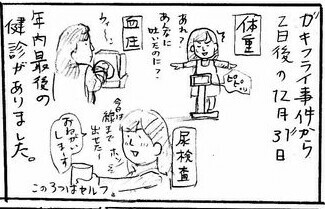 カキフライ事件から
2日後の12月31日
体重
あれ?
あんなに
吐いたのに?
ピピッ
血圧
年内最後の
健診がありました。
尿検査
今日は
顔まで
ホンシで
出せたー
おねがい
しまーす
この3つはセルフ。